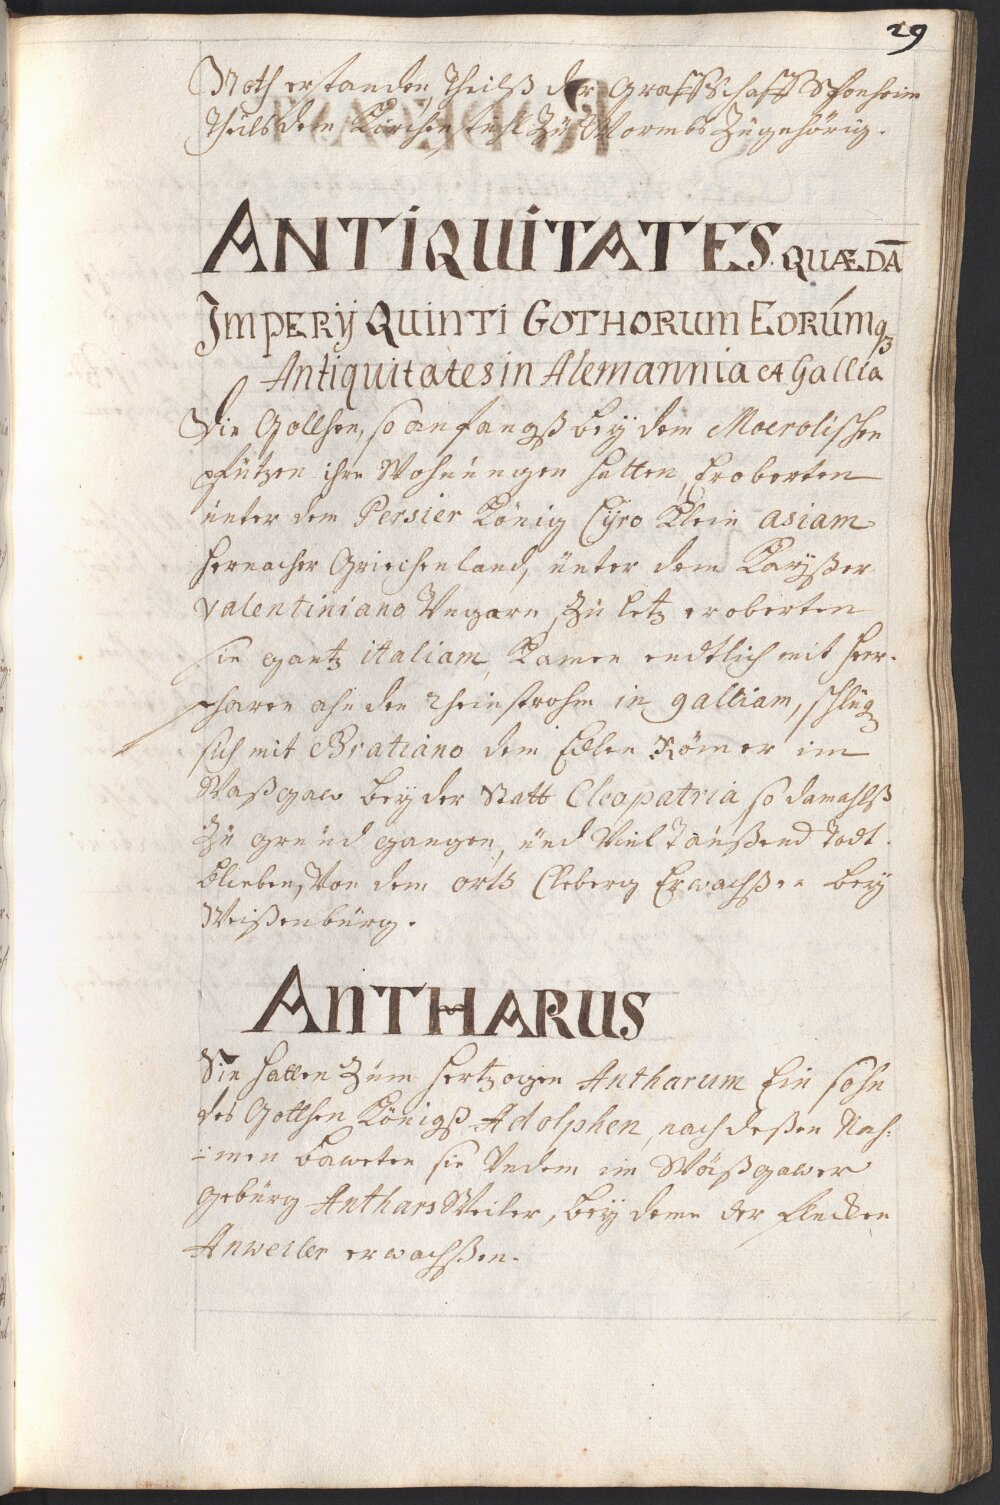 29
Noth erstanden, Theilß der Graffschafft Sponheim
Theils dem Kirchen stifft Zů Wormbs Zůgehörig.
ANTIQUITATES. QUÆDĀ
IMPERIJ QUINTI GOTHORUM EORÚMqz
Antiquitates in Alemannia et Gallia
Die Gotthen, so anfangß beÿ dem Moerotischen
pfützen ihre Wohnůngen hatten, Eroberten
ůnter dem Persier König Cÿro Klein asiam
hernacher Griechenland, ůnter dem Kaÿßer
Valentiniano Vngarn, Zů letz eroberten
sie gantz italiam, Kamen endtlich mit heer-
scharen ahn den Rheinstrohm in galliam, schlůg
sich mit Bratiano dem Edlen Römer im
Waßgaw beÿ der Statt Cleopatria, so damahlß
Zů grůnd gangen, ůnd Viel Taůßend Todt
blieben, Von dem orth Cleberg Erwachßen beÿ
Weißenbůrg.
ANTHARUS
Sie hatten Zům hertzogen Antharum Ein sohn
des Gotthen Königß Adolphen, nach deßen Nah-
men baweten sie Vndem im Waßgawer
gebůrg Anthars Weiler, beÿ deme der flecken
Anweiler erwachßen.